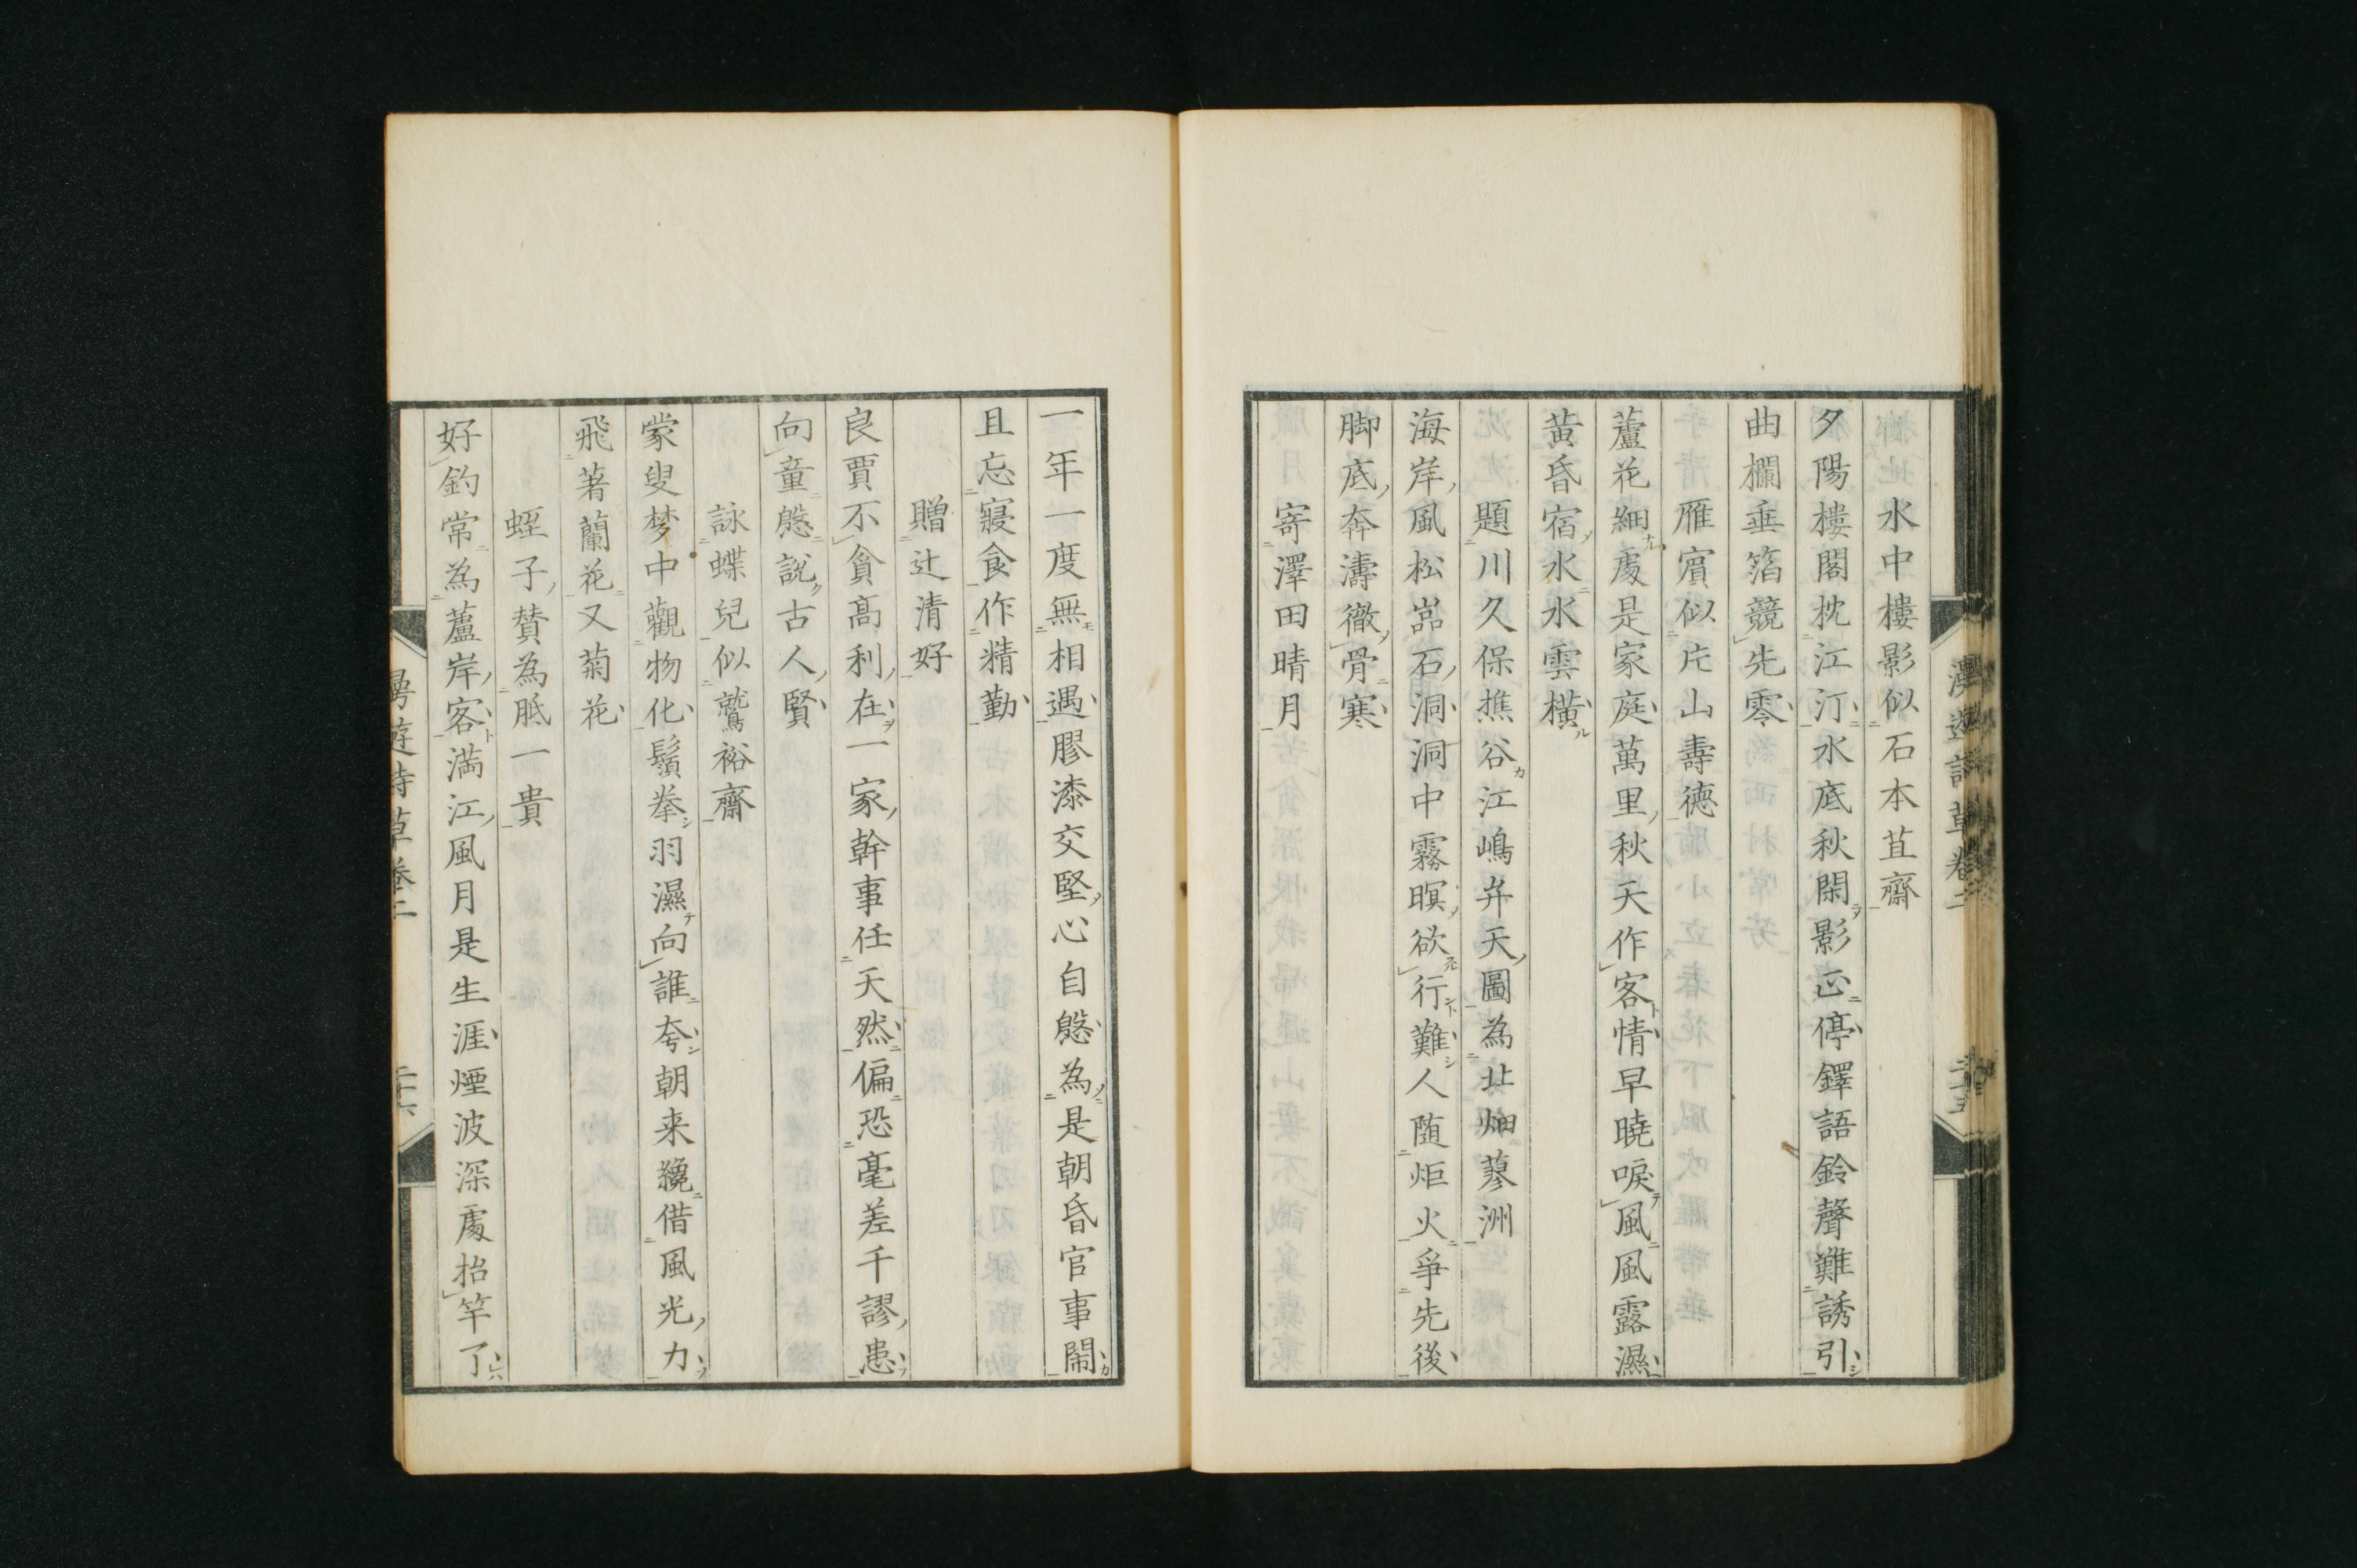 水中樓影似石本苴齋
夕陽樓閣枕江汀水底秋閑影正停鐸語鈴聲難誘引
曲欄垂箔競先零
雁賓似片山壽德
蘆花細處是家庭萬里秋天作客情早曉唳風風露濕
黃昏宿水水雲橫
題川久保樵谷江嶋弁天圖為北畑蓼洲
海岸風松嵓石洞洞中霧暝欲行難人随炬火爭先後
脚底奔濤徹骨寒
寄澤田晴月
一年一度無相遇膠漆交堅心自慇為是朝昏官事鬧
且忘寢食作精勤
贈辻清好
良賈不貪高利在一家幹事任天然偏恐毫差千謬患
向童慇說古人賢
詠蝶兒似鷲裕齋
蒙叟梦中觀物化鬚拳羽濕向誰夸朝来纔借風光力
飛著蘭花又菊花
蛭子賛為胝一貴
好釣常為蘆岸客満江風月是生涯煙波深處抬竿了
漫遊詩草卷二
二十六